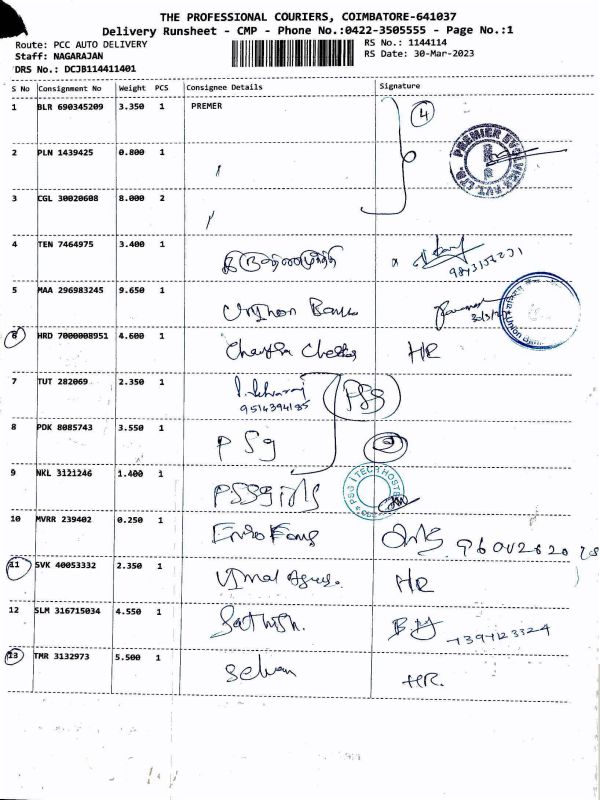 THE PROFESSIONAL COURIERS, COIMBATORE-641037
Delivery Runsheet - CMP - Phone No.:0422-3505555 - Page No.:1
Route: PCC AUTO DELIVERY
RS No.: 1144114
Staff: NAGARAJAN
RS Date: 30-Mar-2023
DRS No.: DCJB114411401
S No Consignment No Weight PCS Consignee Details Signature
1 BLR 690345209 3.350 1 PREMER 4
2 PLN 1439425 0.800 1
3 CGL 30020608 8.000 2
4 TEN 7464975 3.400 1
5 MAA 296983245 9.650 1
6 HRD 7000008951 4.600 1 HR
7 TUT 282069 2.350 1 PSG
9514394185
8 PDK 8085743 3.550 1 PSG
9 NKL 3121246 1.400 1
PSG iTECH HOSTEL
10 MVRR 239402 0.250 1
11 SVK 40053332 2.350 1 HR
12 SLM 316715034 4.550 1 Sathish.
13 TMR 3132973 5.500 1 Selvan HR.